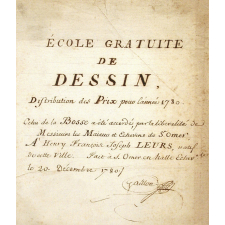 ÉCOLE GRATUITE
DE
DESSIN,
Distribution des Prix pour l'année 1780.
Celui de la Bosse a été accordé par la liberalité de
Messieurs les Maieur et Echevins de St Omer
A Henry François Joseph LEURS, natif
de cette Ville. Fait à St Omer en halle Echev.
le 20 Décembre 1780